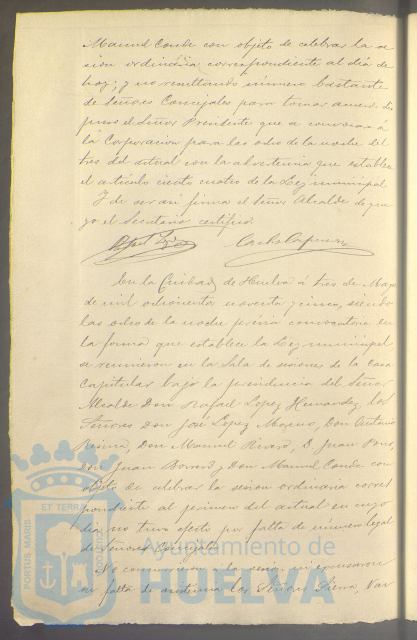 Manuel Conde con objeto de celebrar la se
sion ordinaria correspondiente al dia de
hoy; y no resultando número bastante
de Señores Concejales para tomar acuerdo dis
puso el Señor Presidente que se convocara á
la Corporacion para las ocho de la noche del
tres del actual con la advertencia que establece
el artículo ciento cuatro de la Ley municipal.
Y de ser así firma el Señor Alcalde de que
yo el Secretario certifico.
En la Ciudad de Huelva á tres de Mayo
de mil ochocientos noventa y cinco, siendo
las ocho de la noche prévia convocatoria en
la forma que establece la Ley municipal
se reunieron en la Sala de sesiones de la Casa
Capitular bajo la presidencia del Señor
Alcalde Don Rafael Lopez Hernandez, los
Señores Don José Lopez Moreno, Don Antonio
Don Manuel D. Juan
Don Juan y Don Manuel Conde con
objeto de celebrar la sesion ordinaria corres
pondiente al primero del actual en cuyo
dia no tuvo efecto por falta de número legal
de Señores Concejales.
No concurrieron á la sesion ni excusaron
su falta de asistencia los Señores Sierra,
PORTUS MARIS
ET TERRAE
Ayuntamiento de
HUELVA